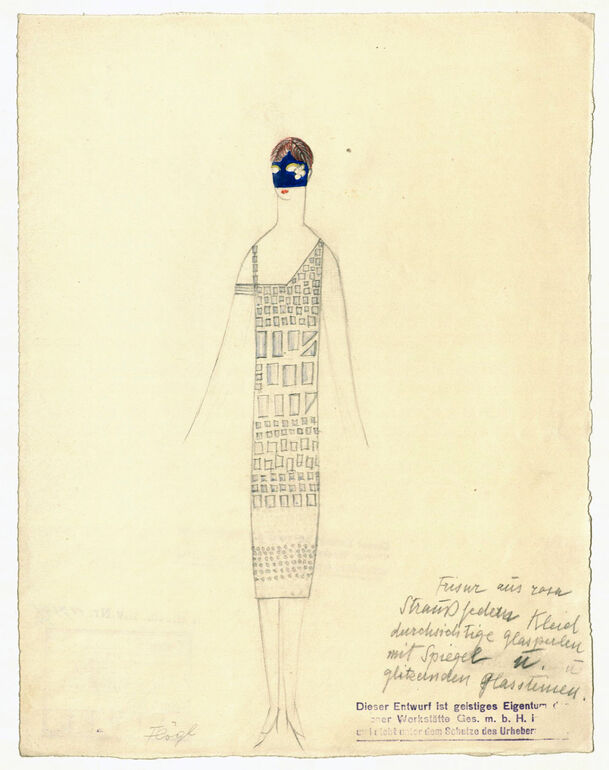 Frisur aus rosa
Straußfedern Kleid
durchsichtige glasperlen
mit Spiegel u.
glitzernden glassteinen.
Dieser Entwurf ist geistiges Eigentum
Werkstätte Ges. m. b. H. i
unter dem Schutze des Urheber
Flögl